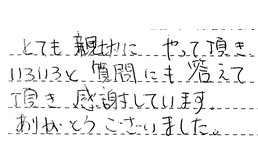 とても親切に やって頂き
いろいろと質問にも答えて
頂き感謝しています。
ありがとうございました。